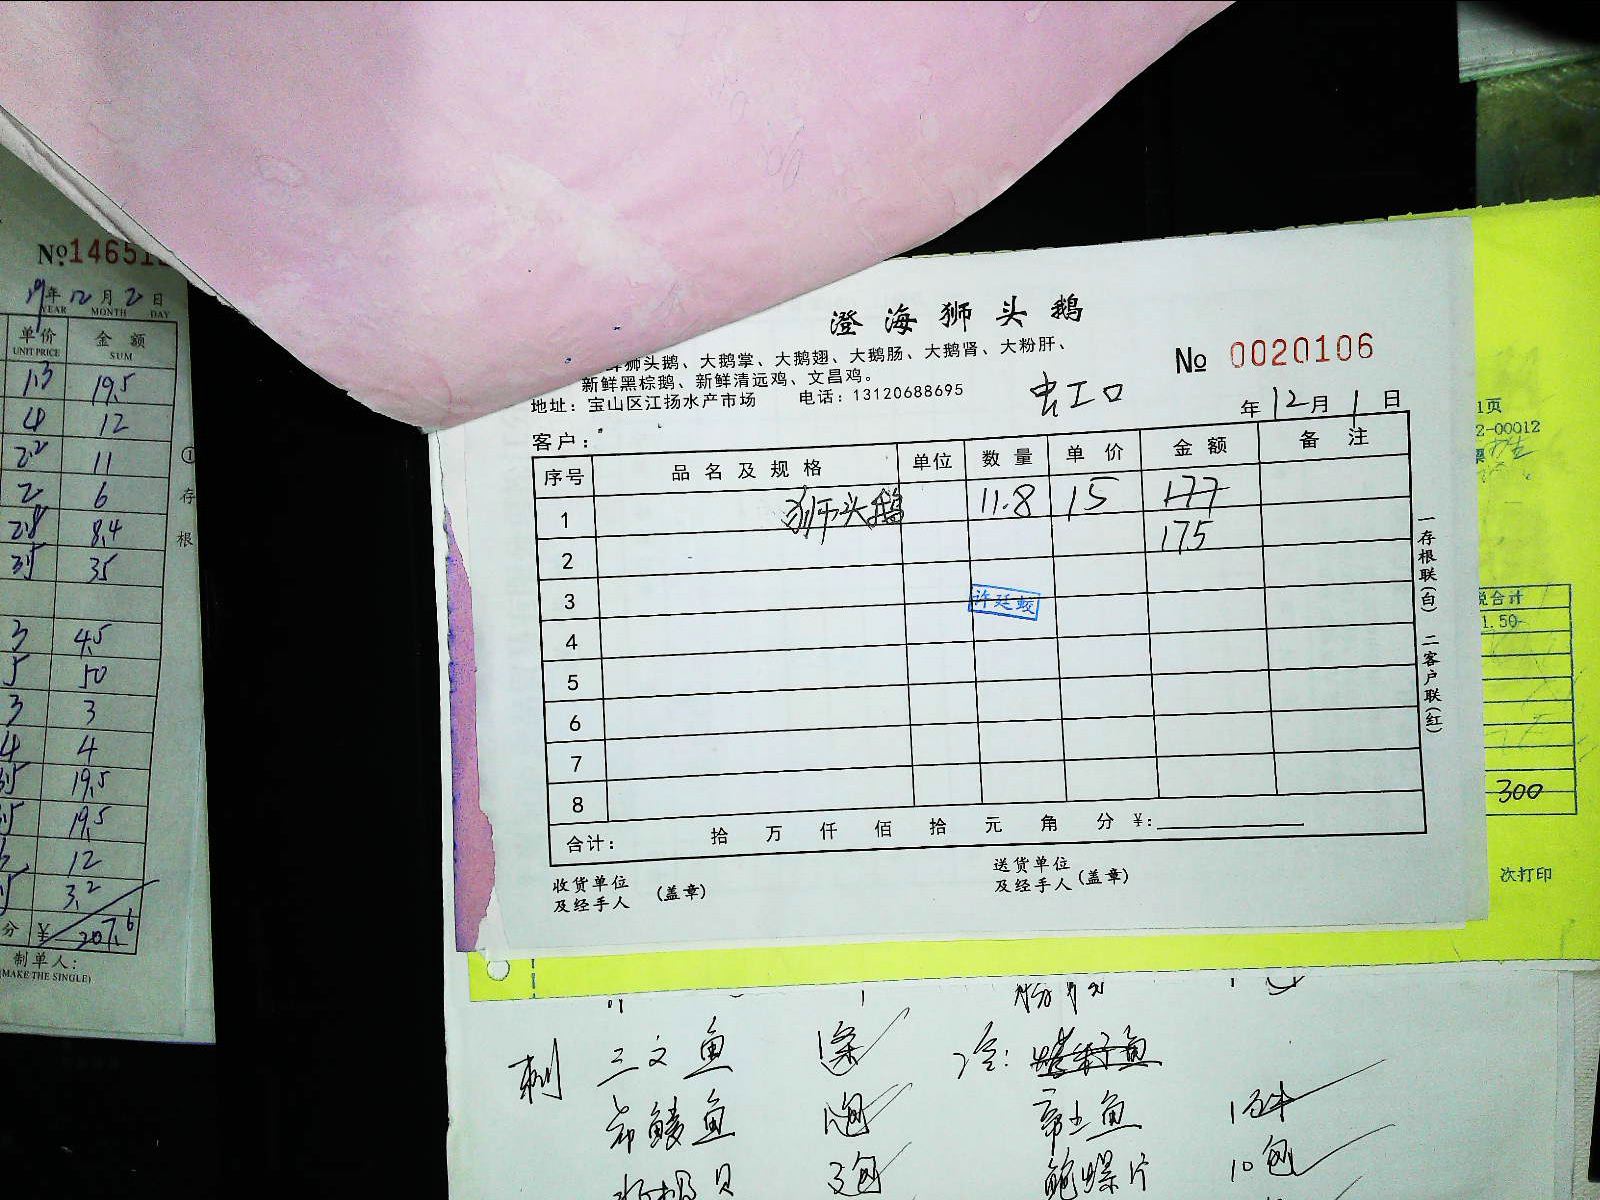 澄海狮头鹅
狮头鹅、大鹅掌、大鹅翅、大鹅肠、大鹅肾、大粉肝、
新鲜黑棕鹅、新鲜清远鸡、文昌鸡。
地址：宝山区江扬水产市场 电话：13120688695
№ 0020106
虫工口
年 12月 1 日
客户：
序号 品名及规格 单位 数量 单价 金额 备注
1 狮头鹅 11.8 15 177
2 175
3
许廷蛟
4
5
6
7
8
合计： 拾 万 仟 佰 拾 元 角 分 ¥：
收货单位
及经手人 （盖章）
送货单位
及经手人（盖章）
一存根联（白） 二客户联（红）
№14651
19年 12月 2日
YEAR MONTH DAY
单价 金额
UNIT PRICE SUM
1.3 19.5
4 12
2.2 11
2 6
2.8 8.4
3.5 35
3 4.5
5 50
3 3
4 4
19.5
19.5
12
3.2
分 ¥ 207.6
制单人：
(MAKE THE SINGLE)
①存根
1页
2-00012
税合计
1.50
300
次打印
刺 三文鱼 1条 冷：
希鲮鱼 1包 章土鱼
3包 鲍螺片 10包